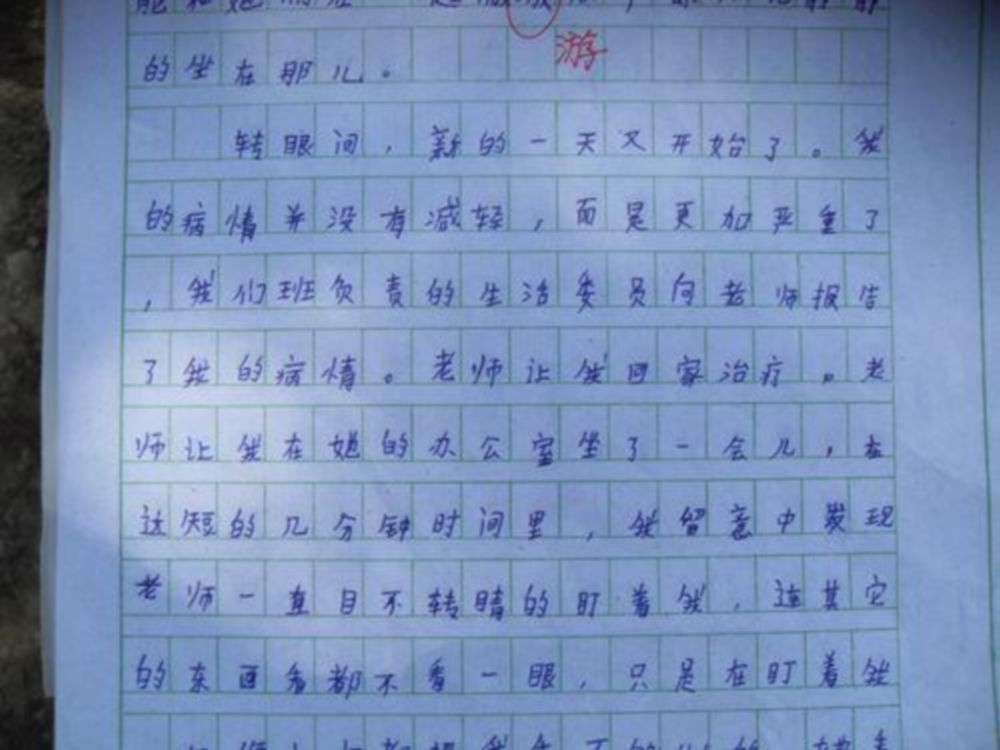 游
的坐在那儿。
转眼间，新的一天又开始了。我
的病情并没有减轻，而是更加严重了
，我们班负责的生活委员向老师报告
了我的病情。老师让我回家治疗。老
师让我在她的办公室坐了一会儿，在
这短的几分钟时间里，我留意中发现
老师一直目不转睛的盯着我，连其它
的东西看都不看一眼，只是在盯着我